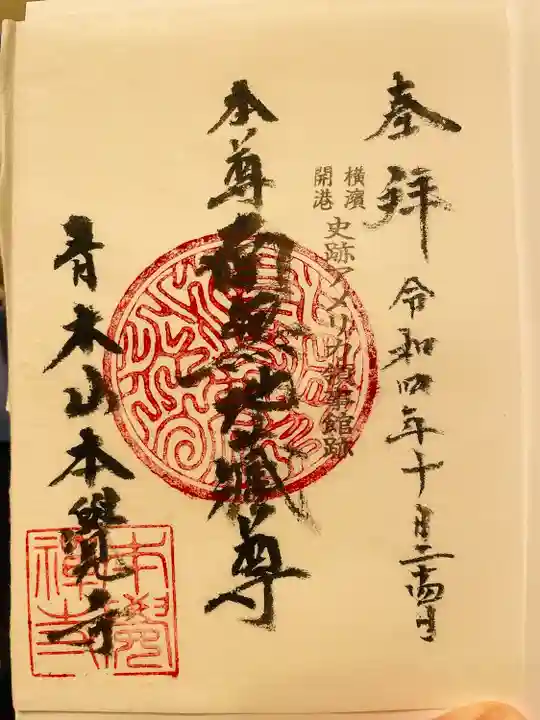 奉拝
令和四年十月二十四日
横濱
開港
史跡アメリカ領事館跡
本尊 南無地蔵尊
青木山本覺寺
本覺
禅寺